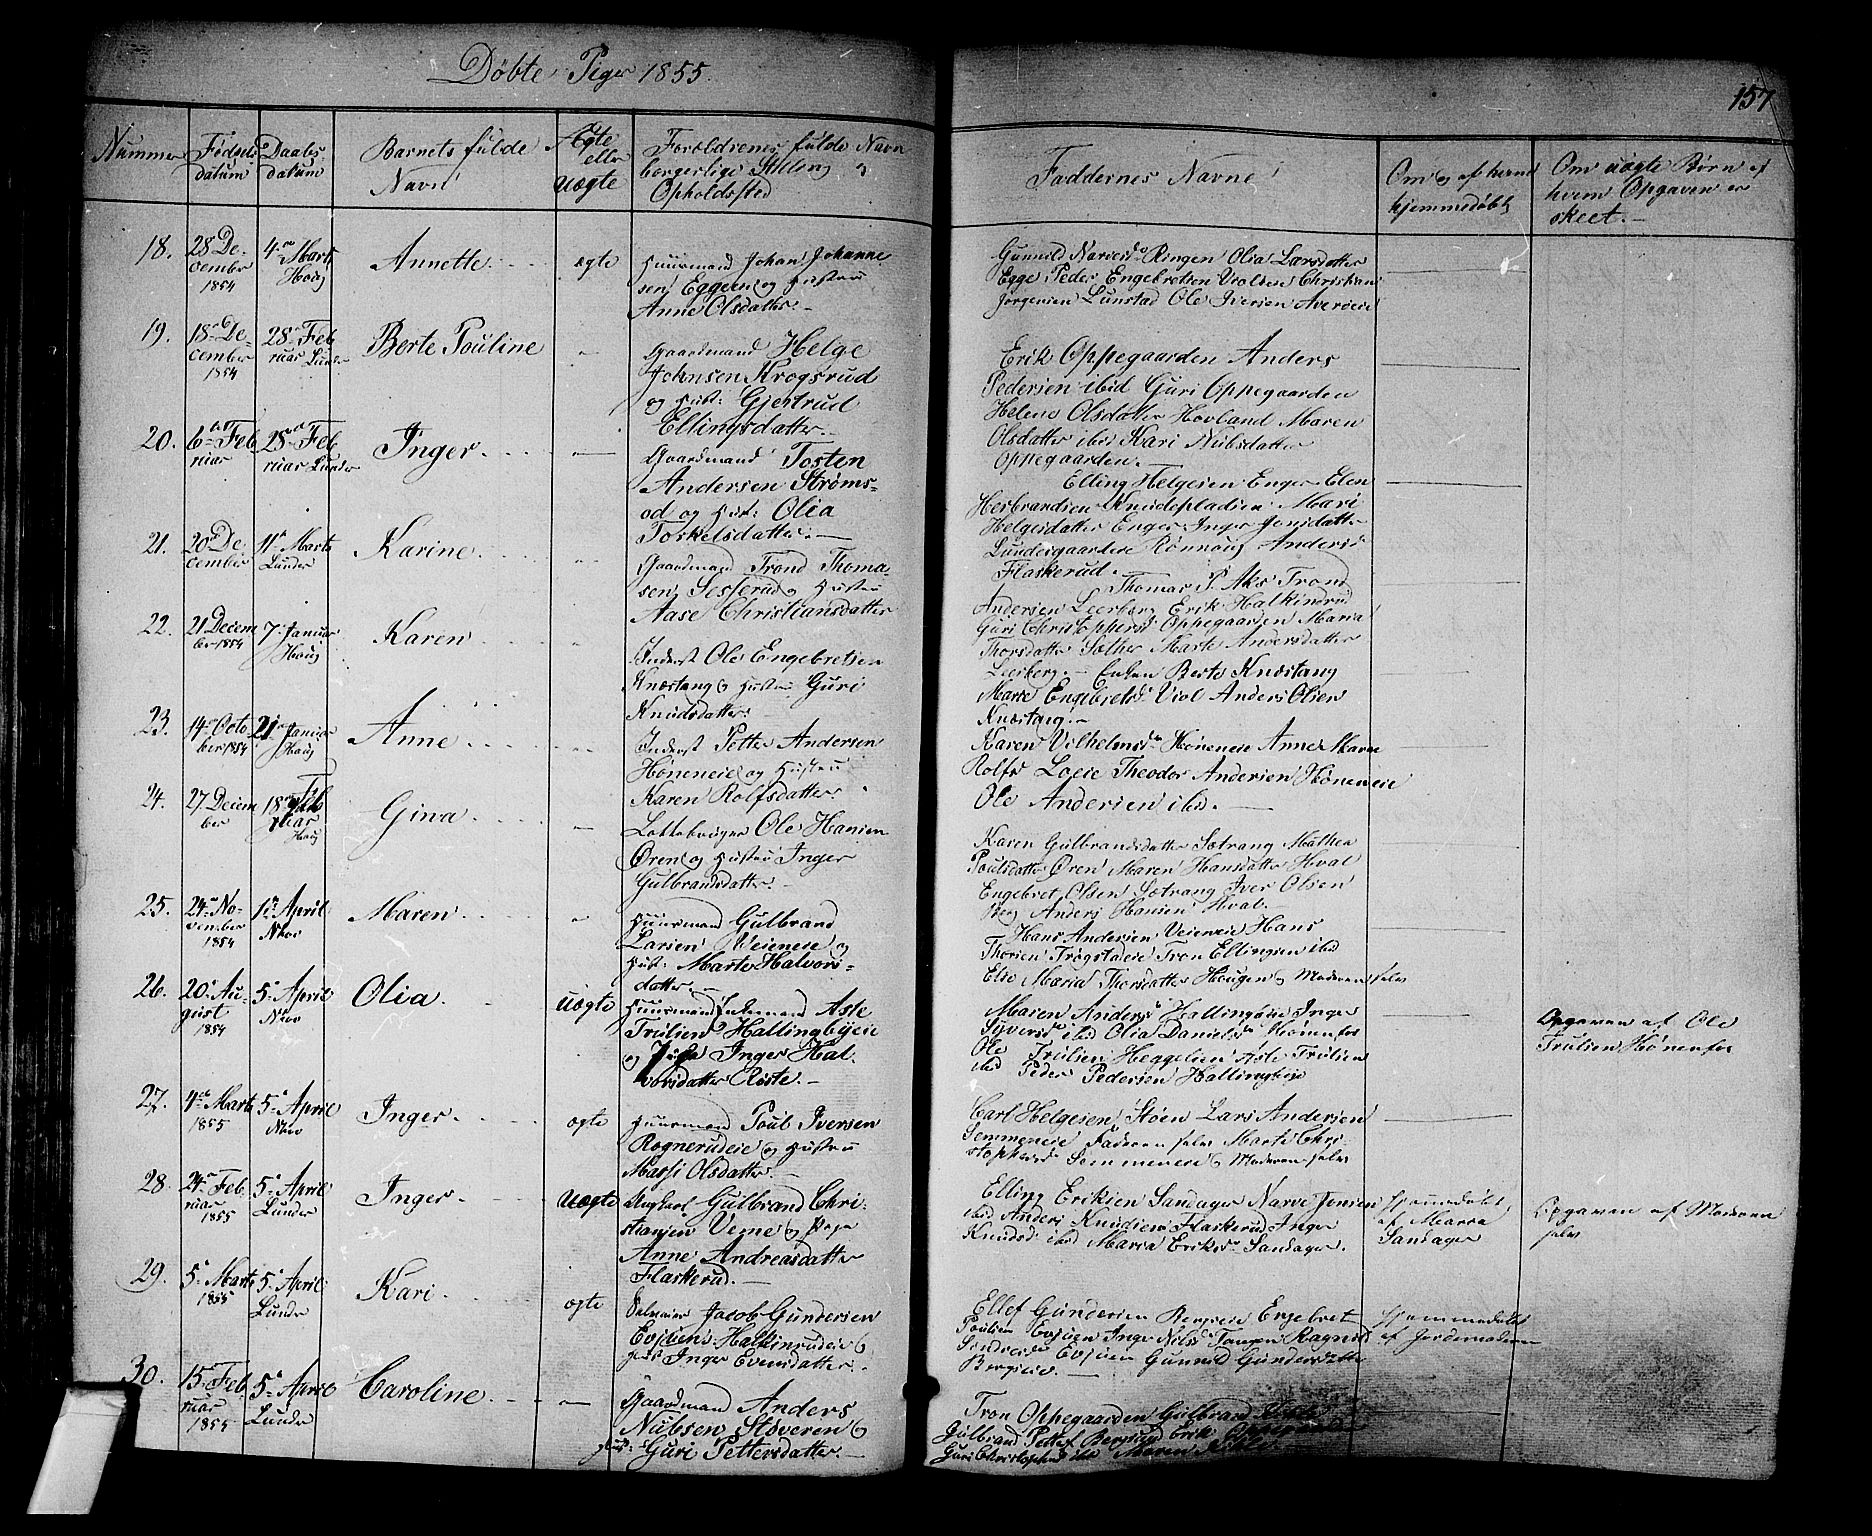 Döbte Piger 1855.
157
Nummer
Födsels
datum
Daabs
datum
Barnets fulde
Navn
Ægte
eller
Uægte
Foroldrenes fulde Navn
borgerlige Stilling og
Opholdssted
Faddernes Navne
Om og af hvem
hjemmedöbt
Om uægte Börn af
hvem Opgaven er
skeet.
18.
28 De-
cember
1854
4. Marts
Houg
Annette.
ægte
Huusmand Johan Johanne
sen Eggeen og Hustru
Anne Olsdatter.
Gunnild Narvesd Ringen Olia Larsdatter
Egge Peder Engebretsen Violden Christian
Jorgensen Lunstad Ole Iversen
19.
18 De-
cember
1854
28 Feb
ruar Lunder
Berte Pouline
Gaardmand Helge
Johnsen Krogsrud
og Hust: Gjertrud
Ellingsdatter.
Erik Oppegaarden Anders
Pedersen ibid Guri Oppegaarden
Helene Olsdatter Hovland Maren
Olsdatter ibid Kari Nubsdatter
Oppegaarden.
20.
6 Feb
ruar
28 Feb
ruar Lunder
Inger.
Gaardmand Tosten
Andersen Ströms-
od og Hust: Olia
Toskelsdatter.
Elling Helgesen Enger Elen
Herbrandsen Knudspladsen Mari
Helgesdatter Enger Inger Jensdatter
Lundesgaardeie Rönnoug Andersd
Flaskerud.
21.
20 De
cember
11 Marts
Lunder
Karine.
Gaardmand Trond Thoma-
sen Sesserud og Hustru
Aase Christiansdatter
Thomas Trond
Andersen Leerberg Erik Halkinrud
Guri Christophersd Oppegaarden Maria
Thorsdatter Sæther Marte Andersdatter
Leerberg.
22.
21 Decem
ber 1854
7. Januar
Houg
Karen
Inderst Ole Engebretsen
Knæstang og Hustru Guri
Knudsdatter.
Enken Berte Knæstang
Marie Engebretsd Viol Anders Olsen
Knæstang.
23.
14 Octo
ber 1854
21 Januar
Houg
Anne
Inderst Petter Andersen
Höneneie og Hustru
Karen Rolfsdatter.
Karen Vilhelmsd Höneneie Anne Marie
Rolfsd Loeie Theodor Andersen Höneneie
Ole Andersen ibid.
24.
27 Decem
ber
18 Feb
ruar
Houg
Gina
Lottebruger Ole Hansen
Ören og Hustru Inger
Gulbrandsdatter.
Karen Gulbrandsdatter Sætrang Mathea
Poulsdatter Ören Maren Hansdatter Hval
Engebret Olsen Sætrang Iver Olsen
Berg Anders Hansen Hval.
25.
24 No-
vember
1854
1 April
Næs
Maren
Huusmand Gulbrand
Larsen Veieneie og
Hust: Marte Halvors-
datter.
Hans Andersen Veieneie Hans
Thorsen Trögstadeie Tron Ellingsen ibid
Else Maria Thorsdatter Haugen og Moderen selv
26.
20 Au-
gust
1854
5 April
Næs
Olia
Uægte
Huusmand Enkemand Asle
Trulsen Hallingbyeie
og Pige Inger Hal
vorsdatter Röste.
Maren Andersd Hallingbyeie Inger
Syversd ibid Olia Danielsd Hönenfos
Ole Trulsen Heggelien Asle Trulsen
ibid Peder Pedersen Hallingbyeie
Opgaven af Ole
Trulsen Hönenfos
27.
4 Marts
1855
5 April
Næs
Inger
ægte
Huusmand Poul Iversen
Rognerudeie og Hustru
Massi Olsdatter.
Carl Helgesen Stöen Lars Andersen
Semmeneie Faderen selv Marte Chri-
stophersd Semmeneie og Moderen selv
28.
24 Feb
ruar
1855
5 April
Lunder
Inger.
Uægte
Ungkarl Gulbrand Chri-
stiansen Veme og Pige
Anne Andreasdatter
Flaskerud.
Elling Eriksen Sandager Narve Jonsen
ibid Anders Knudsen Flaskerud Inger
Knudsd ibid Maria Eriksd Sandager.
Hjemmedöbt
af Maria
Sandager
Opgaven af Moderen
selv
29.
5 Marts
1855
5 April
Lunder
Kari.
ægte
Selveier Jacob Gundersen
Evjuen Halkinrudeie og
Inger Evensdatter.
Ellef Gundersen Bergseie Engebret
Poulsen Evjuen Inger Nilsd Tangen Ragnild
Evjuen Gunnild Gundersdatter
Bergseie.
Hjemmedöbt
af Jordemoderen
30.
15 Feb
ruar
1854
5 April
Lunder
Caroline
Gaardmand Anders
Nubsen Stöveren og
Hust: Guri Pettersdatter.
Tron Oppegaarden Gulbrand
Gulbrand Petters Bergsund Erik
Guri Christophersd ibid Maren